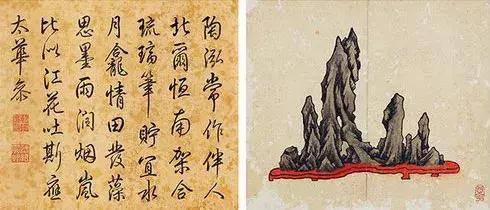 陶泓常作伴人
北爾恒南架合
琉璃筆貯宜水
月龕情田發藻
思墨雨润烟嵐
比似江花吐斯應
太華叅